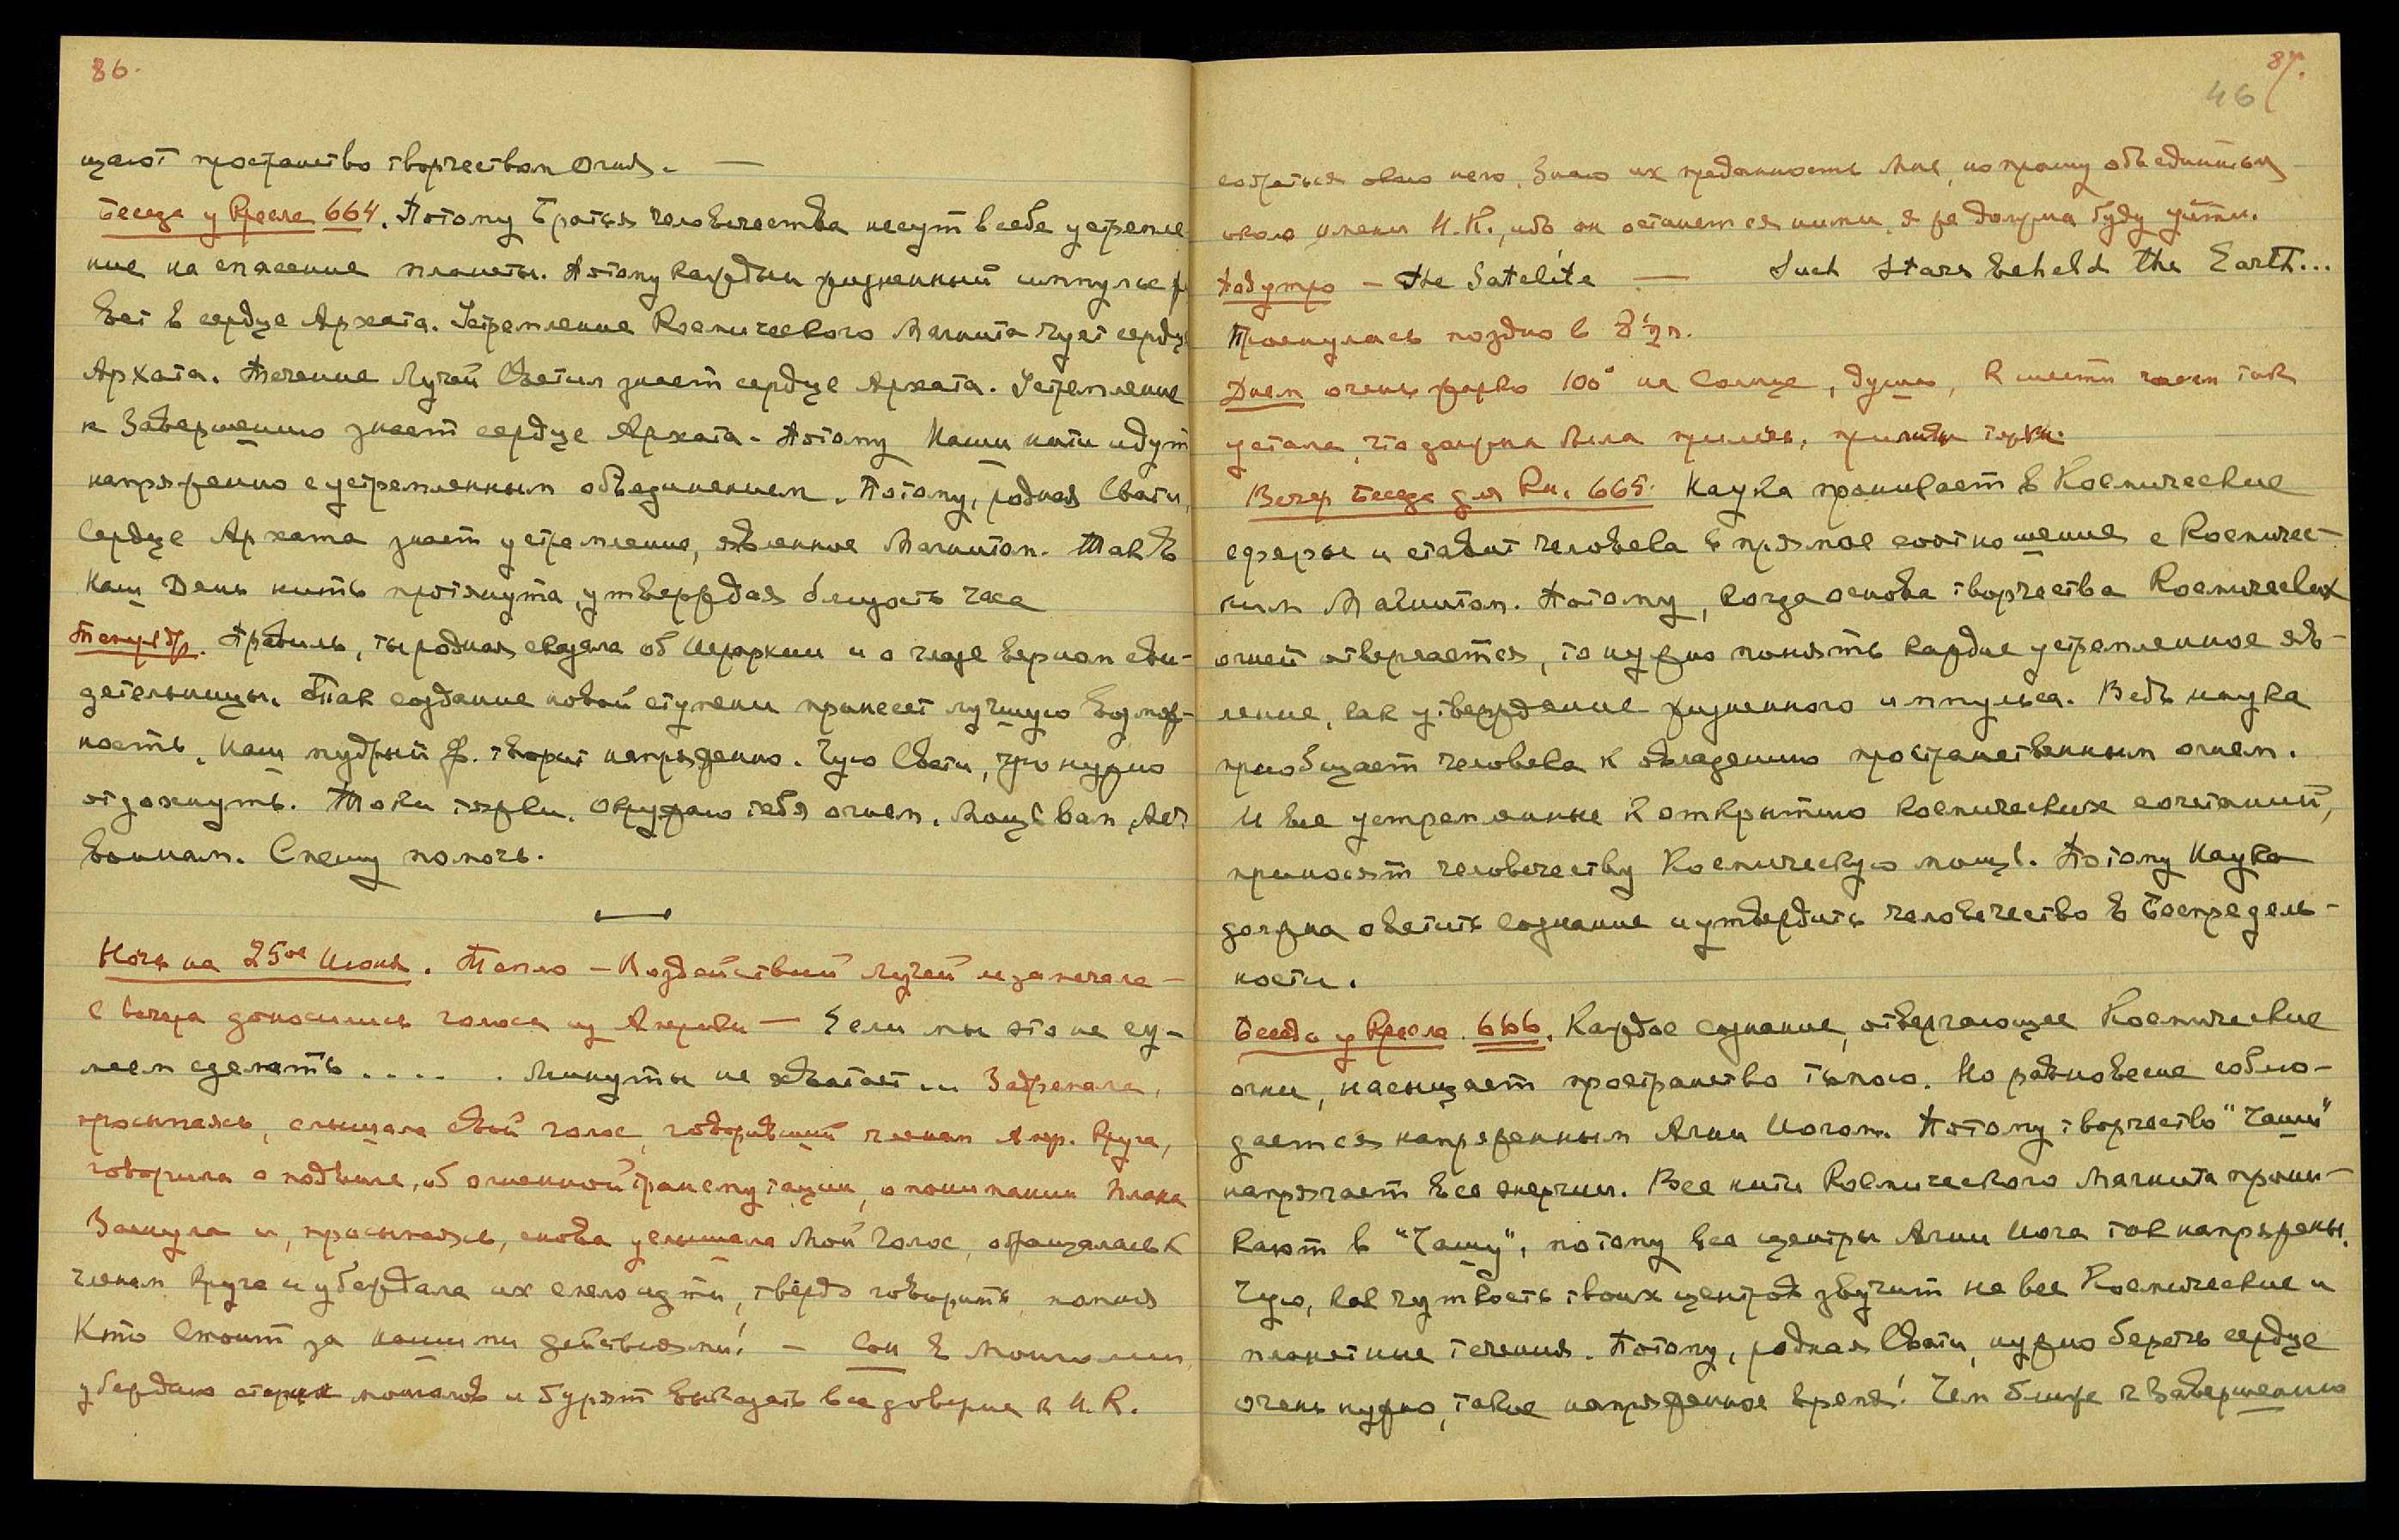 86.
щают пространство творчеством огня. —
Беседа у Кресла 664. Потому Братья Человечества несут в себе устремле
ние на спасение планеты. Потому каждый жизненный импульс жи
вет в сердце Архата. Устремление Космического Магнита чует сердце
Архата. Течение Лучей Светил знает сердце Архата. Устремление
к Завершению знает сердце Архата. Потому Наши нити идут
напряженно с устремленным объединением. Потому, родная Свати,
Сердце Архата знает устремление, явленное Магнитом. Так в
Наш День нить протянута, утверждая близость часа
Теперь др. Правиль, ты родная сказала об Иерархии и о глазе верном сви-
детельницы. Так создание новой ступени принесет лучшую возмож-
ность. Наш мудрый Ф. творит напряженно. Чую Свати, нужно
отдохнуть. Токи тяжки. Окружаю тебя огнем. Мощь вам,
воинам. Спешу помочь.
Ночь на 25ое Июня. Тепло — Воздействий лучей не замечала —
с вечера доносились голоса из Америки — Если мы это не су-
меем сделать . . . . . Минуты не хватает... Задремала,
просыпаясь, слышала свой голос, говоривший членам Амер. Круга,
говорила о подвиге, об огненной трансмутации, о понимании Плана
Заснула и, просыпаясь, снова услышала Мой Голос, обращалась к
членам Круга и убеждала их смело идти, твердо говорить, помня
Кто Стоит за нашими действиями! — Сон в Монголии,
убеждаю старых монголов и бурят выказать все доверие к Н.К.
87.
46
собраться около него. Знаю их преданность Мне, но прошу объединиться
около имени Н.К., ибо он останется с ними, я же должна буду уйти.
Под утро — The Satelite — Such Stars beheld the Earth...
Проснулась поздно в 8½ ч.
Днем очень жарко 100° на Солнце, душно, к шести часам так
устала, что должна была прилечь, приливы тяжки.
Вечер Беседа для Кн. 665. Наука проникает в Космические
сферы и ставит человека в прямое соотношение с Космичес-
ким Магнитом. Потому, когда основа творчества Космических
огней отвергается, то нужно понять каждое устремленное яв-
ление, как утверждение жизненного импульса. Ведь наука
приобщает человека к овладению пространственным огнем.
И все устремленные к открытию космических сочетаний,
приносят человечеству Космическую мощь. Потому Наука
должна осветить сознание и утвердить человечество в Беспредель-
ности.
Беседа у Кресла 666. Каждое сознание, отвергающее Космические
огни, насыщает пространство тьмою. Но равновесие соблю-
дается напряженным Агни Иогом. Потому творчество "Чаши"
напрягает все энергии. Все нити Космического Магнита прони-
кают в "Чашу", потому все центры Агни Иога так напряжены.
Чую, как чуткость твоих центров звучит на все Космические и
планетные течения. Потому, родная Свати, нужно беречь сердце
очень нужно, такое напряженное время! Чем ближе к Завершению